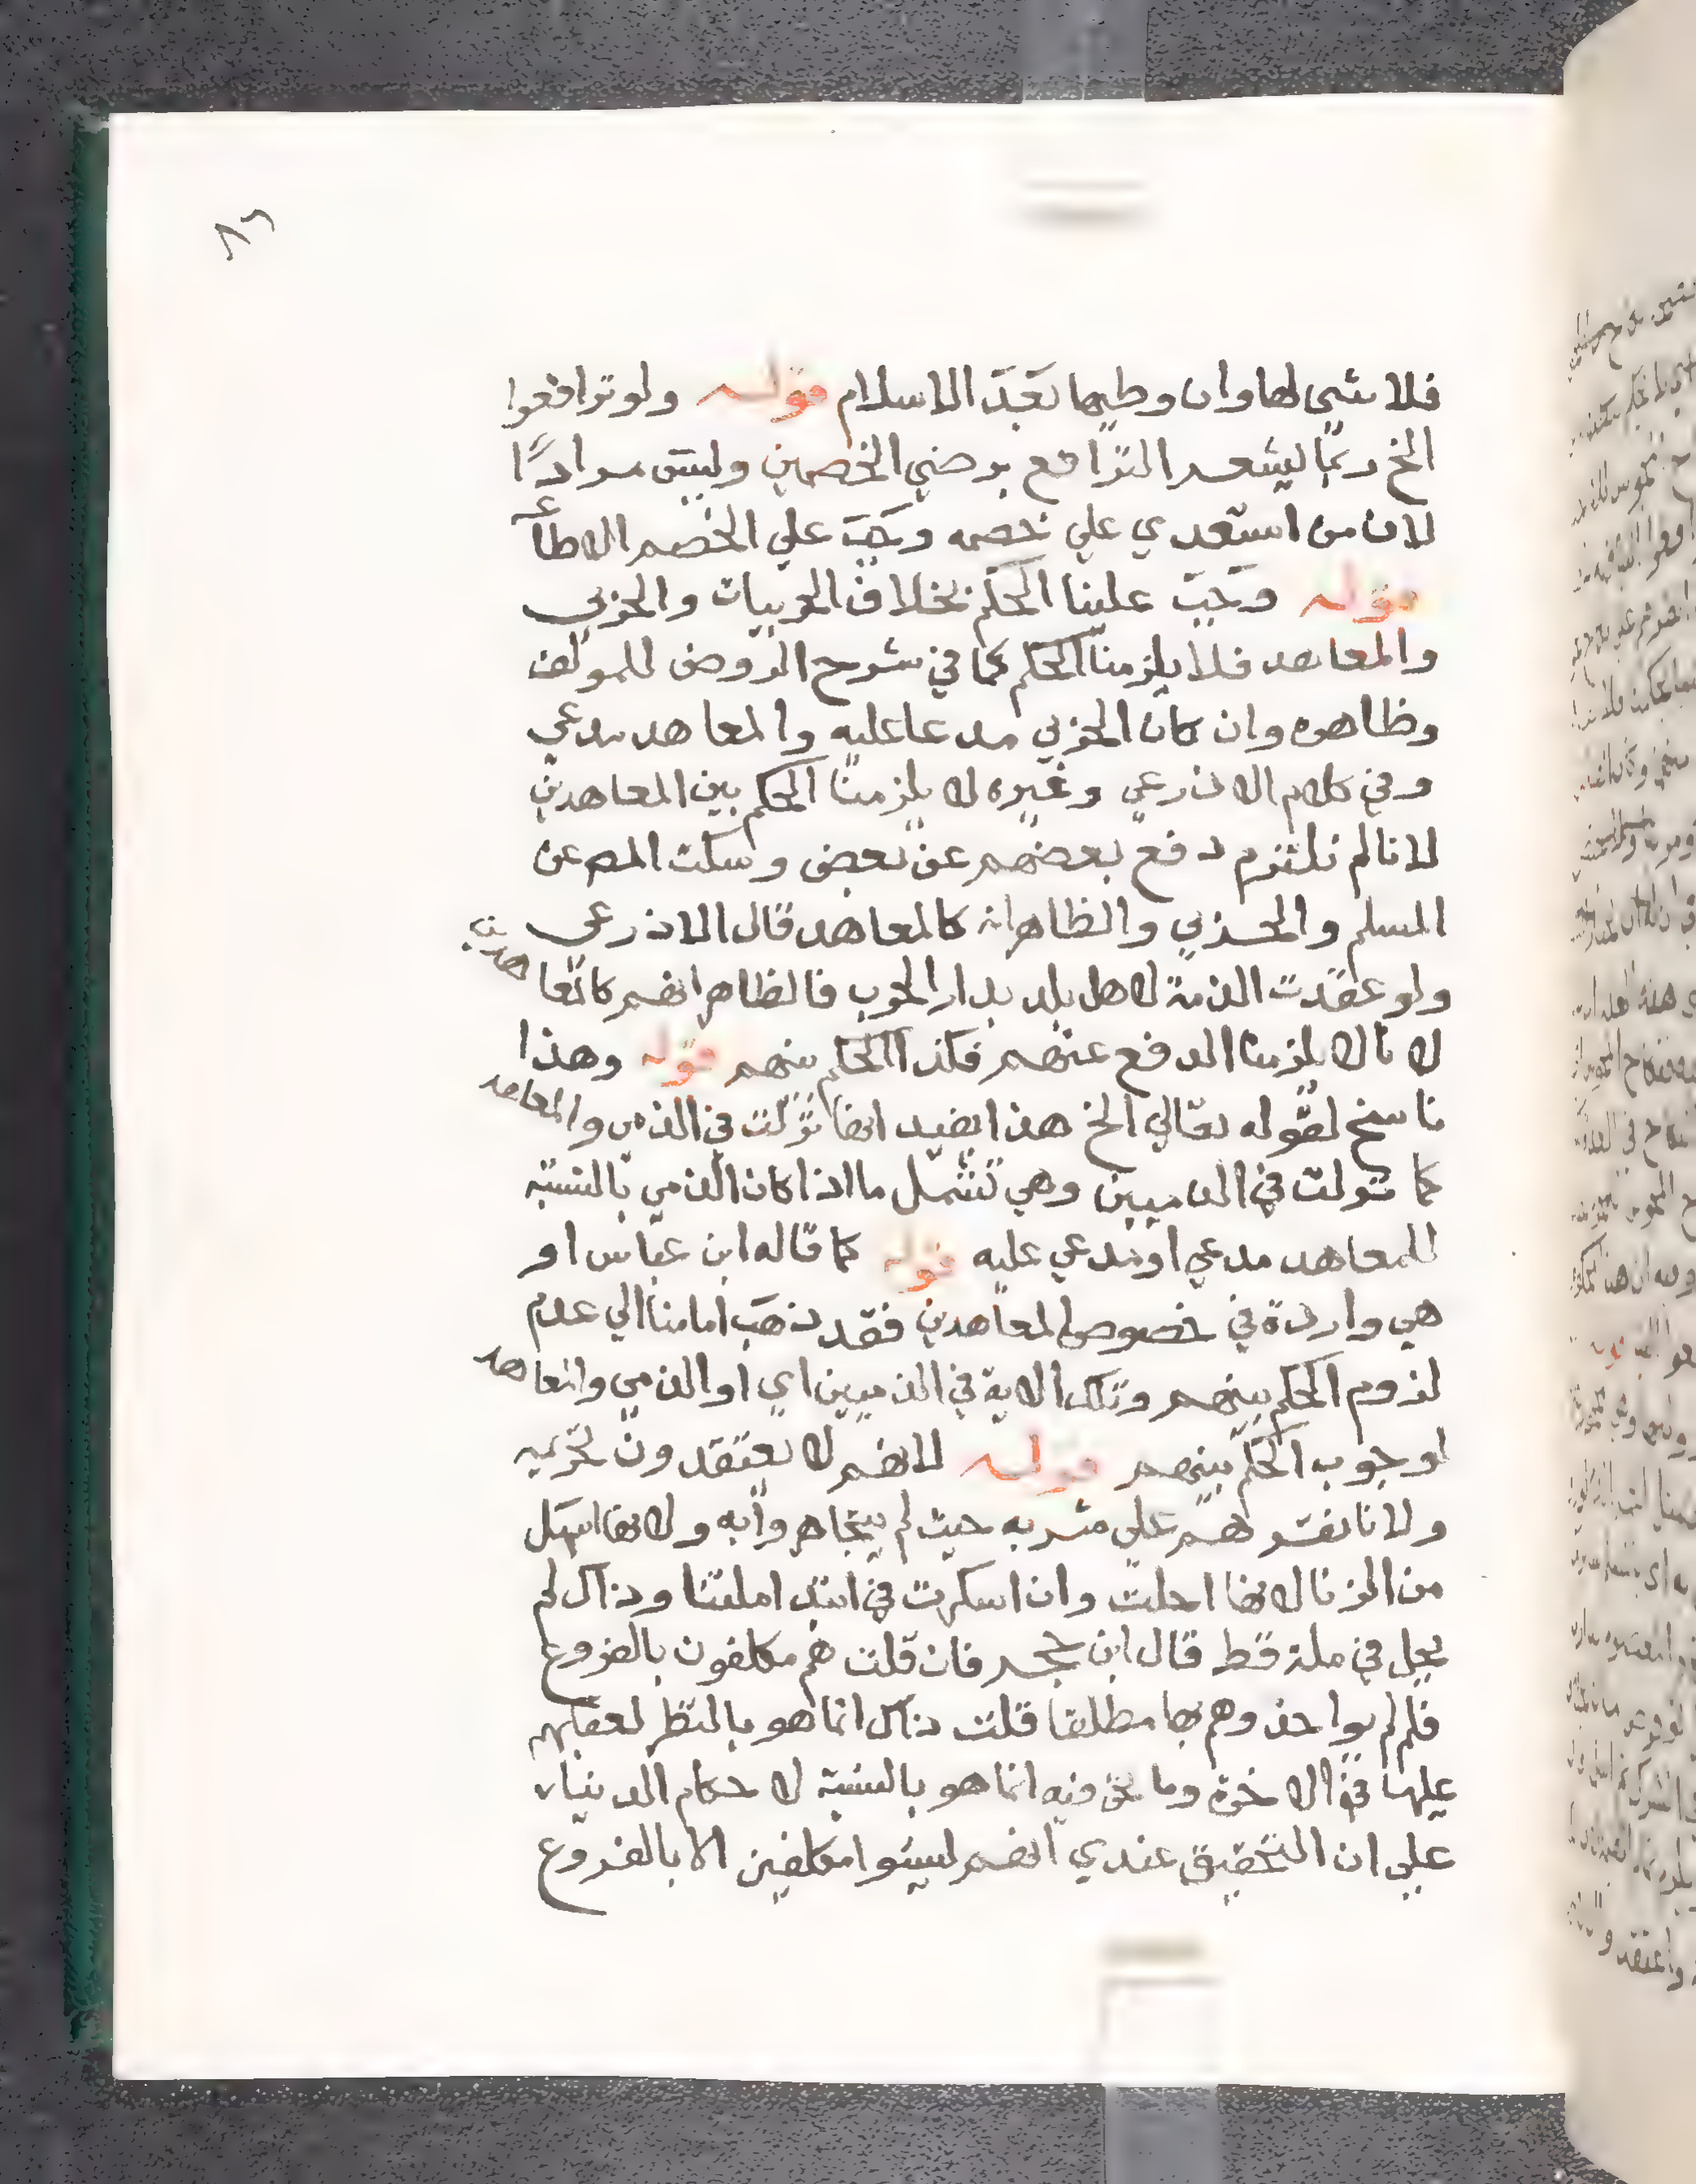 ٨٢
فلا شي لها وان وطيها بعد الاسلام قوله ولو ترافعوا
الخ ربما يشعر الترافع برضي الخصمين وليس مرادًا
لان من استعدي علي خصمه وجب علي الخصم الاطاعة
قوله وجب علينا الحكم بخلاف الحربيات والحربي
والمعاهد فلا يلزمنا الحكم كما في شرح الروض للمولف
وظاهره وان كان الحربي مدعا عليه والمعاهد مدعي
وفي كلام الاذرعي وغيره لا يلزمنا الحكم بين المعاهدين
لانا لم نلتزم دفع بعضهم عن بعض وسكت المص عن
المسلم والحربي والظاهر انه كالمعاهد قال الاذرعي
ولو عقدت الذمة لاهل بلد بدار الحرب فالظاهر انهم كالمعاهدين
لانا لا يلزمنا الدفع عنهم فكذا الحكم بينهم قوله وهذا
ناسخ لقوله تعالي الخ هذا يفيد انها نزلت في الذمي والمعاهد
كما نزلت في الذميين وهي تشمل ما اذا كان الذمي بالنسبة
للمعاهد مدعي او مدعي عليه قوله كما قاله ابن عباس او
هي واردة في خصوص المعاهدين فقد ذهب امامنا الي عدم
لزوم الحكم بينهم وتلك الاية في الذميين اي او الذمي والمعاهد
لوجوب الحكم بينهم قوله لانهم لا يعتقدون تحريمه
ولانا نقرهم علي شربه حيث لم يتجاهروا به ولانها اسهل
من الزنا لانها احلت وان اسكرت في ابتدا ملتنا وذاك لم
يحل في ملة قط قال ابن حجر فان قلت هم مكلفون بالفروع
فلم لم يواخذوهم بها مطلقا قلت ذاك انما هو بالنظر لعقابهم
عليها في الاخرة وما نحن فيه انما هو بالنسبة لاحكام الدنيا
علي ان التحقيق عندي انهم ليسوا مكلفين الا بالفروع